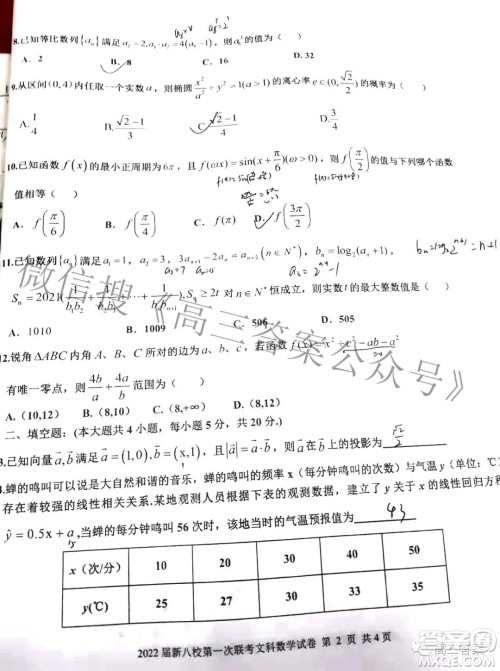 8.已知等比数列{aₙ}满足a₂=2,a₃·a₇=4(a₅-1)，则a₈的值为（ ）
A. 2 B. 8 C. 16 D. 32
9.从区间(0,4)内任取一个实数a，则椭圆x²/a²+y²=1(a>1)的离心率e∈(0,√2/2)的概率为（ ）
A. 1/4 B. (√2-1)/3 C. (√2-1)/4 D. 3/4
10.已知函数f(x)的最小正周期为6π，且f(ωx)=sin(x+π/6)(ω>0)，则f(π/2)的值与下列哪个函数
值相等（ ）
A. f(π/6) B. f(π/4) C. f(π) D. f(3π/2)
11.已知数列{aₙ}满足a₁=1，a₂=3，3aₙ₊₁-2aₙ=aₙ₊₂(n∈N*)，bₙ=log₂(aₙ+1)，
a₃=7
bₙ=log₂2ⁿ⁺¹=n+1
Sₙ=2021(1/b₁b₂+…+1/bₙbₙ₊₁)，Sₙ≥2t对n∈N*恒成立，则实数t的最大整数值是（ ）
A. 1010 B. 1009 C. 506 D. 505
12.锐角△ABC内角A、B、C所对的边为a、b、c，若函数f(x)=x²+c²-ab-a²
有唯一零点，则4b/a+4a/b范围为（ ）
A.(10,12) B.(8,10) C.(8,+∞) D.(8,12)
二、填空题：(本大题共4小题，每小题5分，共20分.)
3.已知向量a,b满足a=(1,0),b=(x,1)，且|a|=a·b，则a在b上的投影为 √2/2
4.蝉的鸣叫可以说是大自然和谐的音乐，蝉鸣叫的频率x（每分钟鸣叫的次数）与气温y（单位：℃）
存在着较强的线性相关关系.某地观测人员根据下表的观测数据，建立了y关于x的线性回归方程
ŷ=0.5x+a,当蝉的每分钟鸣叫56次时，该地当时的气温预报值为 43
15
x（次/分） 10 20 30 40 50
y(℃) 20 27 30 33 35
2022届新八校第一次联考文科数学试卷 第 2 页 共4页
微信搜《高三答案公众号》